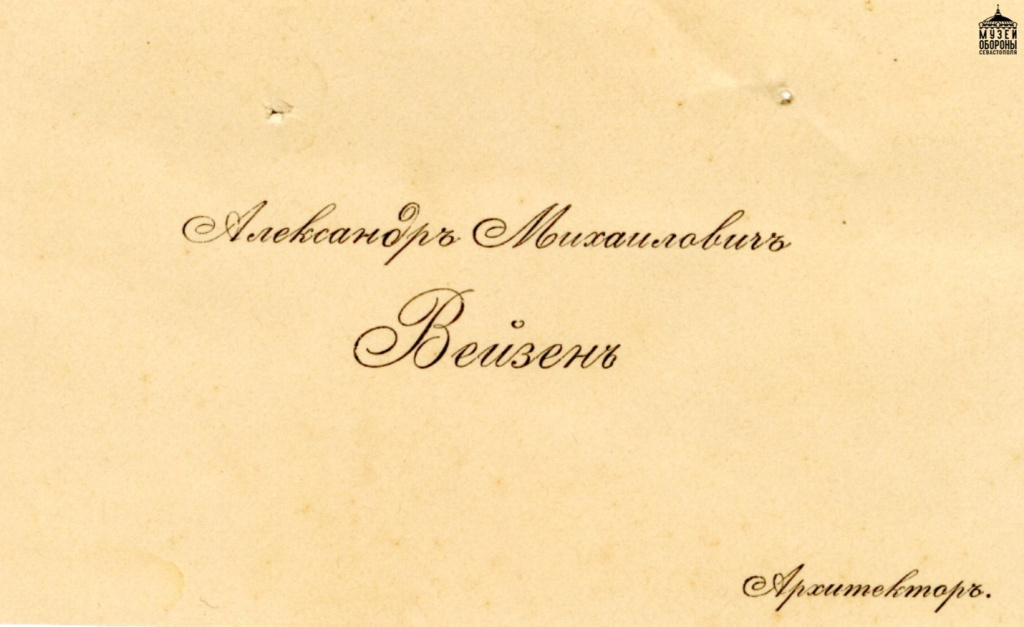 МУЗЕЙ
ОБОРОНЫ
СЕВАСТОПОЛЯ
Александръ Михаиловичъ
Вейзенъ
Архитекторъ.